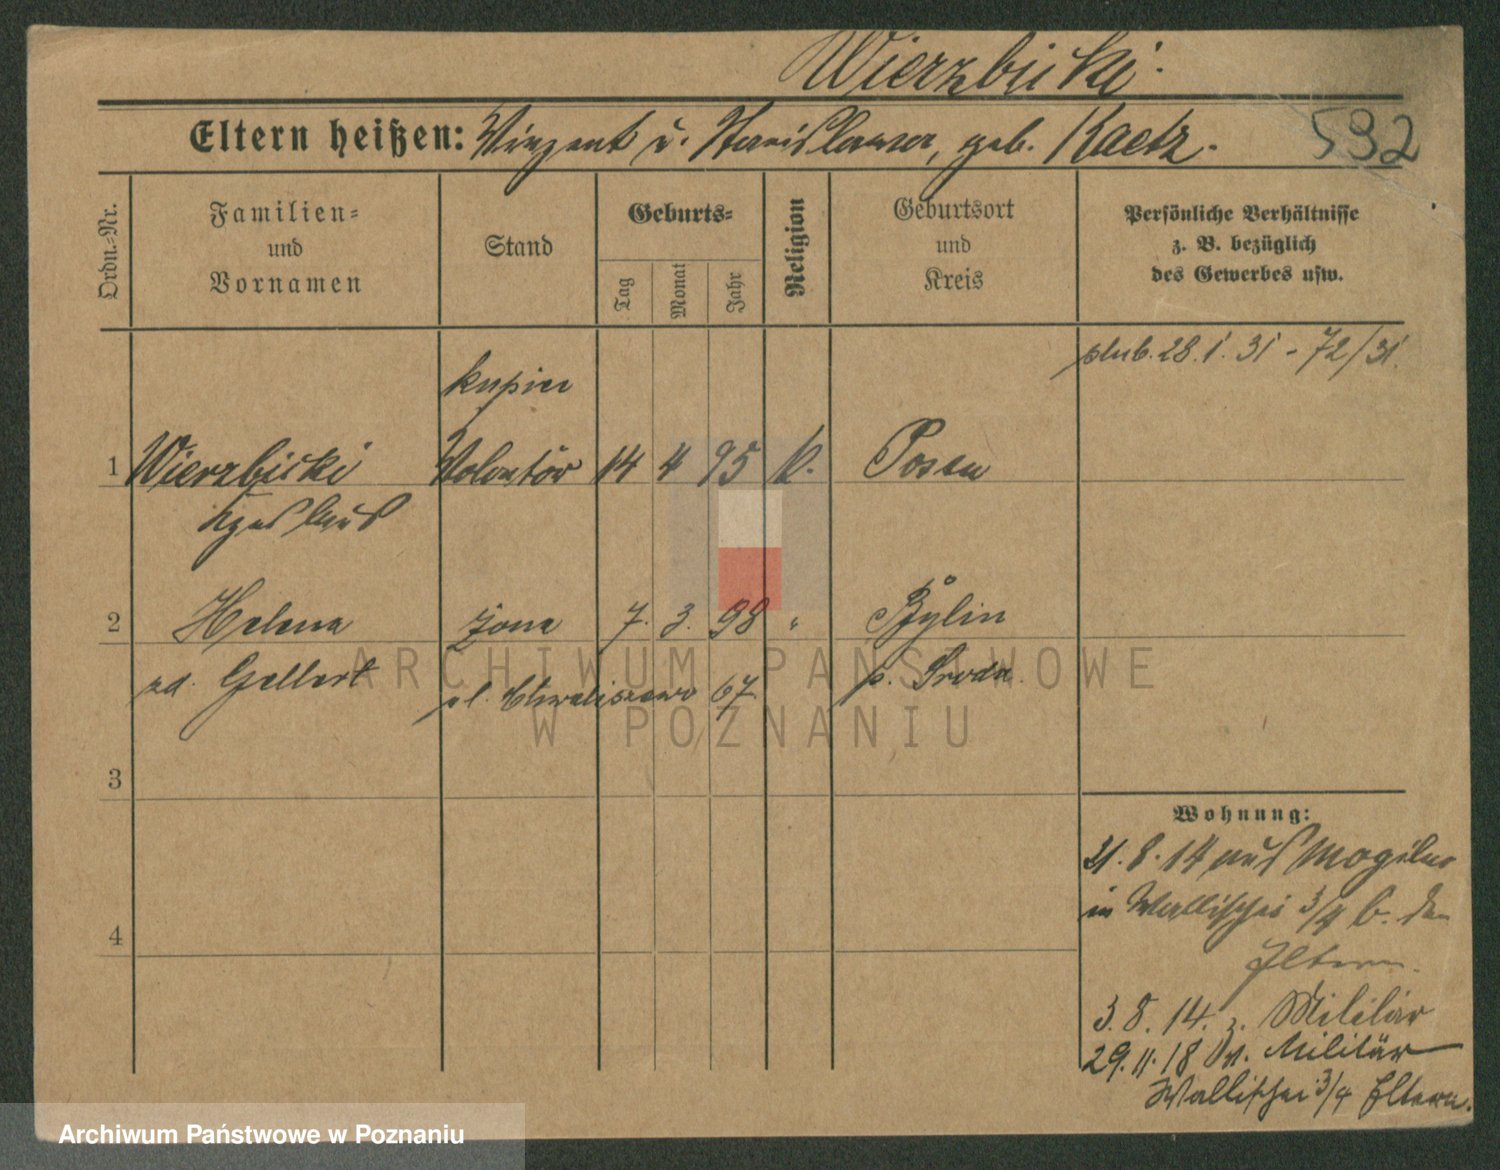 Wierzbicki
Eltern heißen: Vinzent u. Stanislawa, geb. Kaetz.
592
Ordn.-Nr.
Familien-
und
Vornamen
Stand
Geburts-
Tag
Monat
Jahr
Religion
Geburtsort
und
Kreis
Persönliche Verhältnisse
z. B. bezüglich
des Gewerbes usw.
28.1.31 - 72/31.
kupiec
1 Wierzbicki Volontär 14 4 95 k. Posen
Czeslaus
2 Helena żona 7. 3. 98 " Bylin
zd. Gellert Chwaliszewo 67 p. Sroda
3
4
Wohnung:
21.8.14 aus Mogilno
in Wallischei 3/4 b. den
Eltern.
3.8.14. z. Militär
29.11.18 v. Militär
Wallischei 3/4 Eltern.
ARCHIWUM PAŃSTWOWE
W POZNANIU
Archiwum Państwowe w Poznaniu